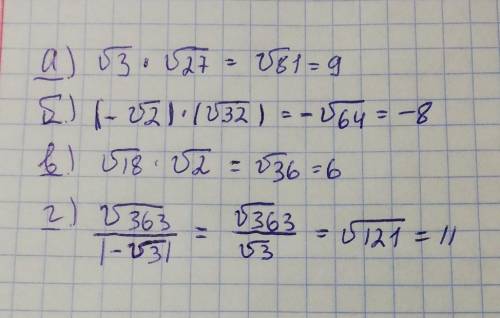 а) √3 · √27 = √81 = 9
б) (-√2) · (√32) = -√64 = -8
в) √18 · √2 = √36 = 6
г) √363 / |-√3| = √363 / √3 = √121 = 11